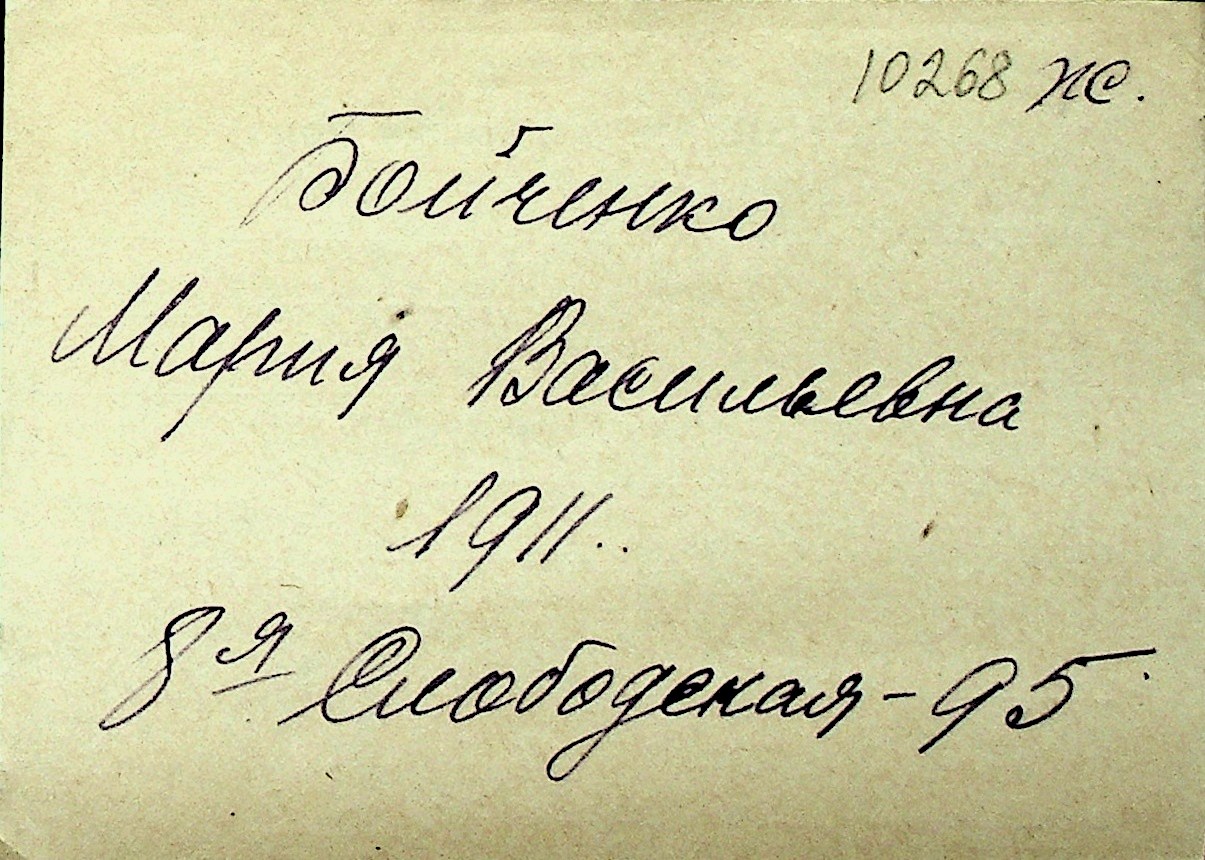 10268 ж.
Бойченко
Мария Васильевна
1911..
8я Слободская - 95